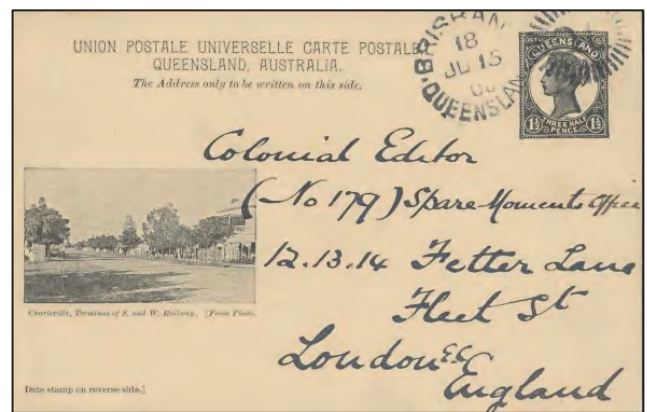 UNION POSTALE UNIVERSELLE CARTE POSTALE
QUEENSLAND, AUSTRALIA.
The Address only to be written on this side.
BRISBAN
18
JU 15
QUEENSLAN
QUEENSLAND
1½ THREE HALF 1½
PENCE
Colonial Editor
(No 179) Spare Moments Office
12.13.14 Fetter Lane
Fleet St
London E.C
England
Charleville, Terminus of S. and W. Railway. [From Photo.
Date stamp on reverse side.]